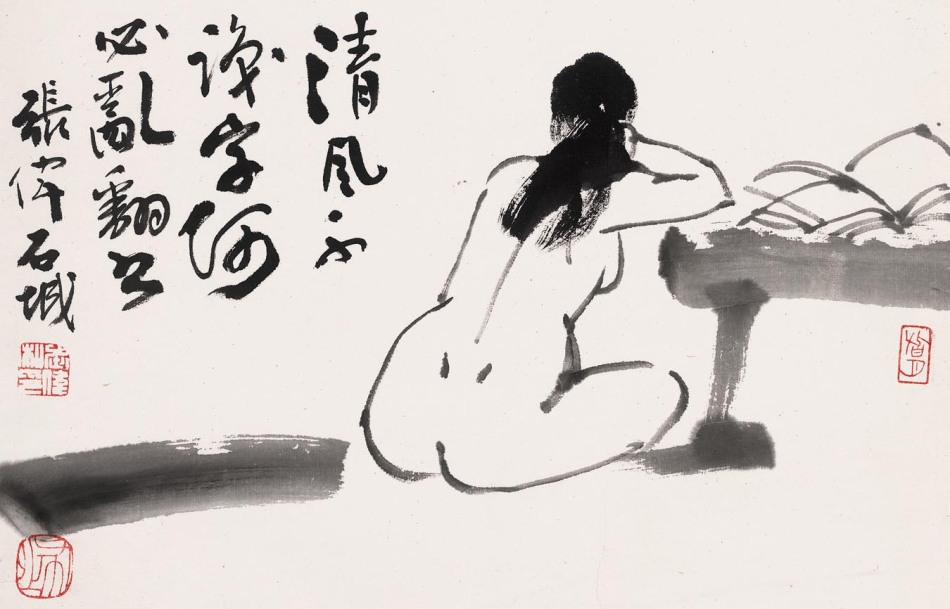 清風不
識字何
必亂翻书
張偉石城